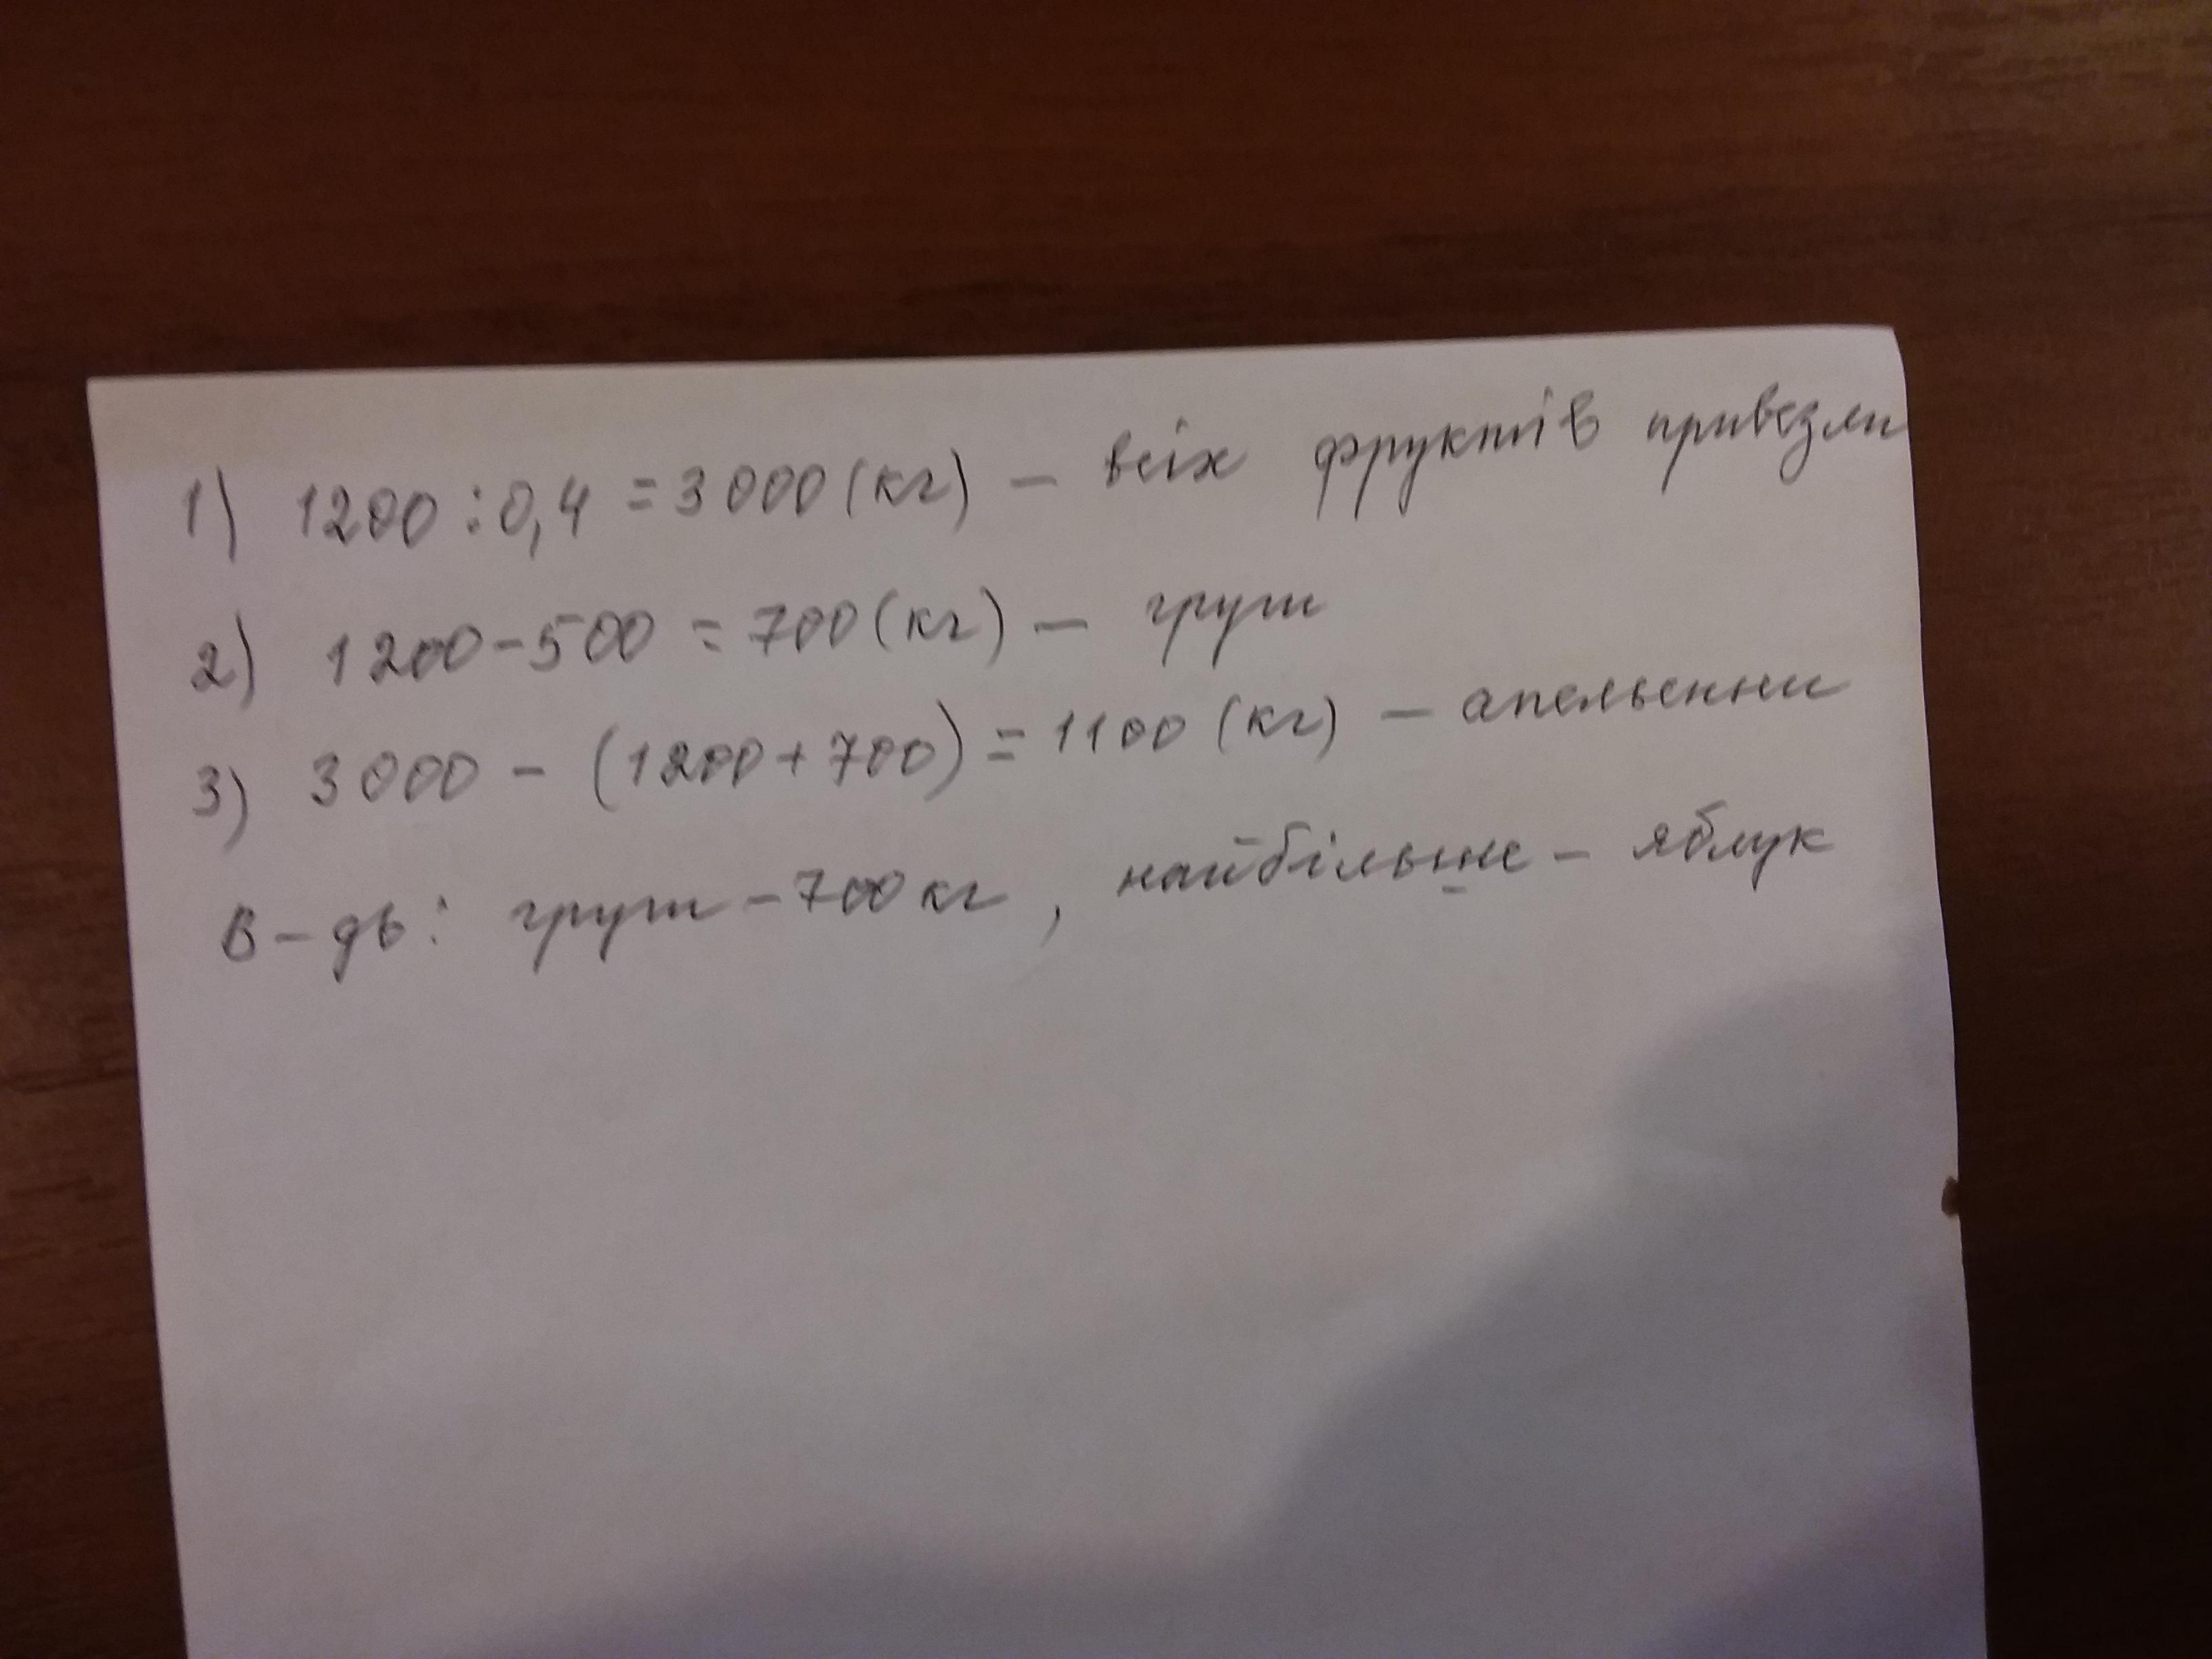 1) 1200 : 0,4 = 3000 (кг) – всіх фруктів привезли
2) 1200 – 500 = 700 (кг) – груш
3) 3000 – (1200 + 700) = 1100 (кг) – апельсини
В-дь: груш – 700 кг, найбільше – яблук